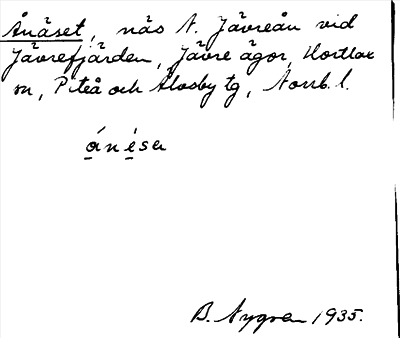 Ånäset, näs N. Jävreån vid
Jävrefjärden, Jävre ägor, Hortlax
sn, Piteå och Älvsby tg, Norrb. l.
ånésa
B. Nygren 1935.